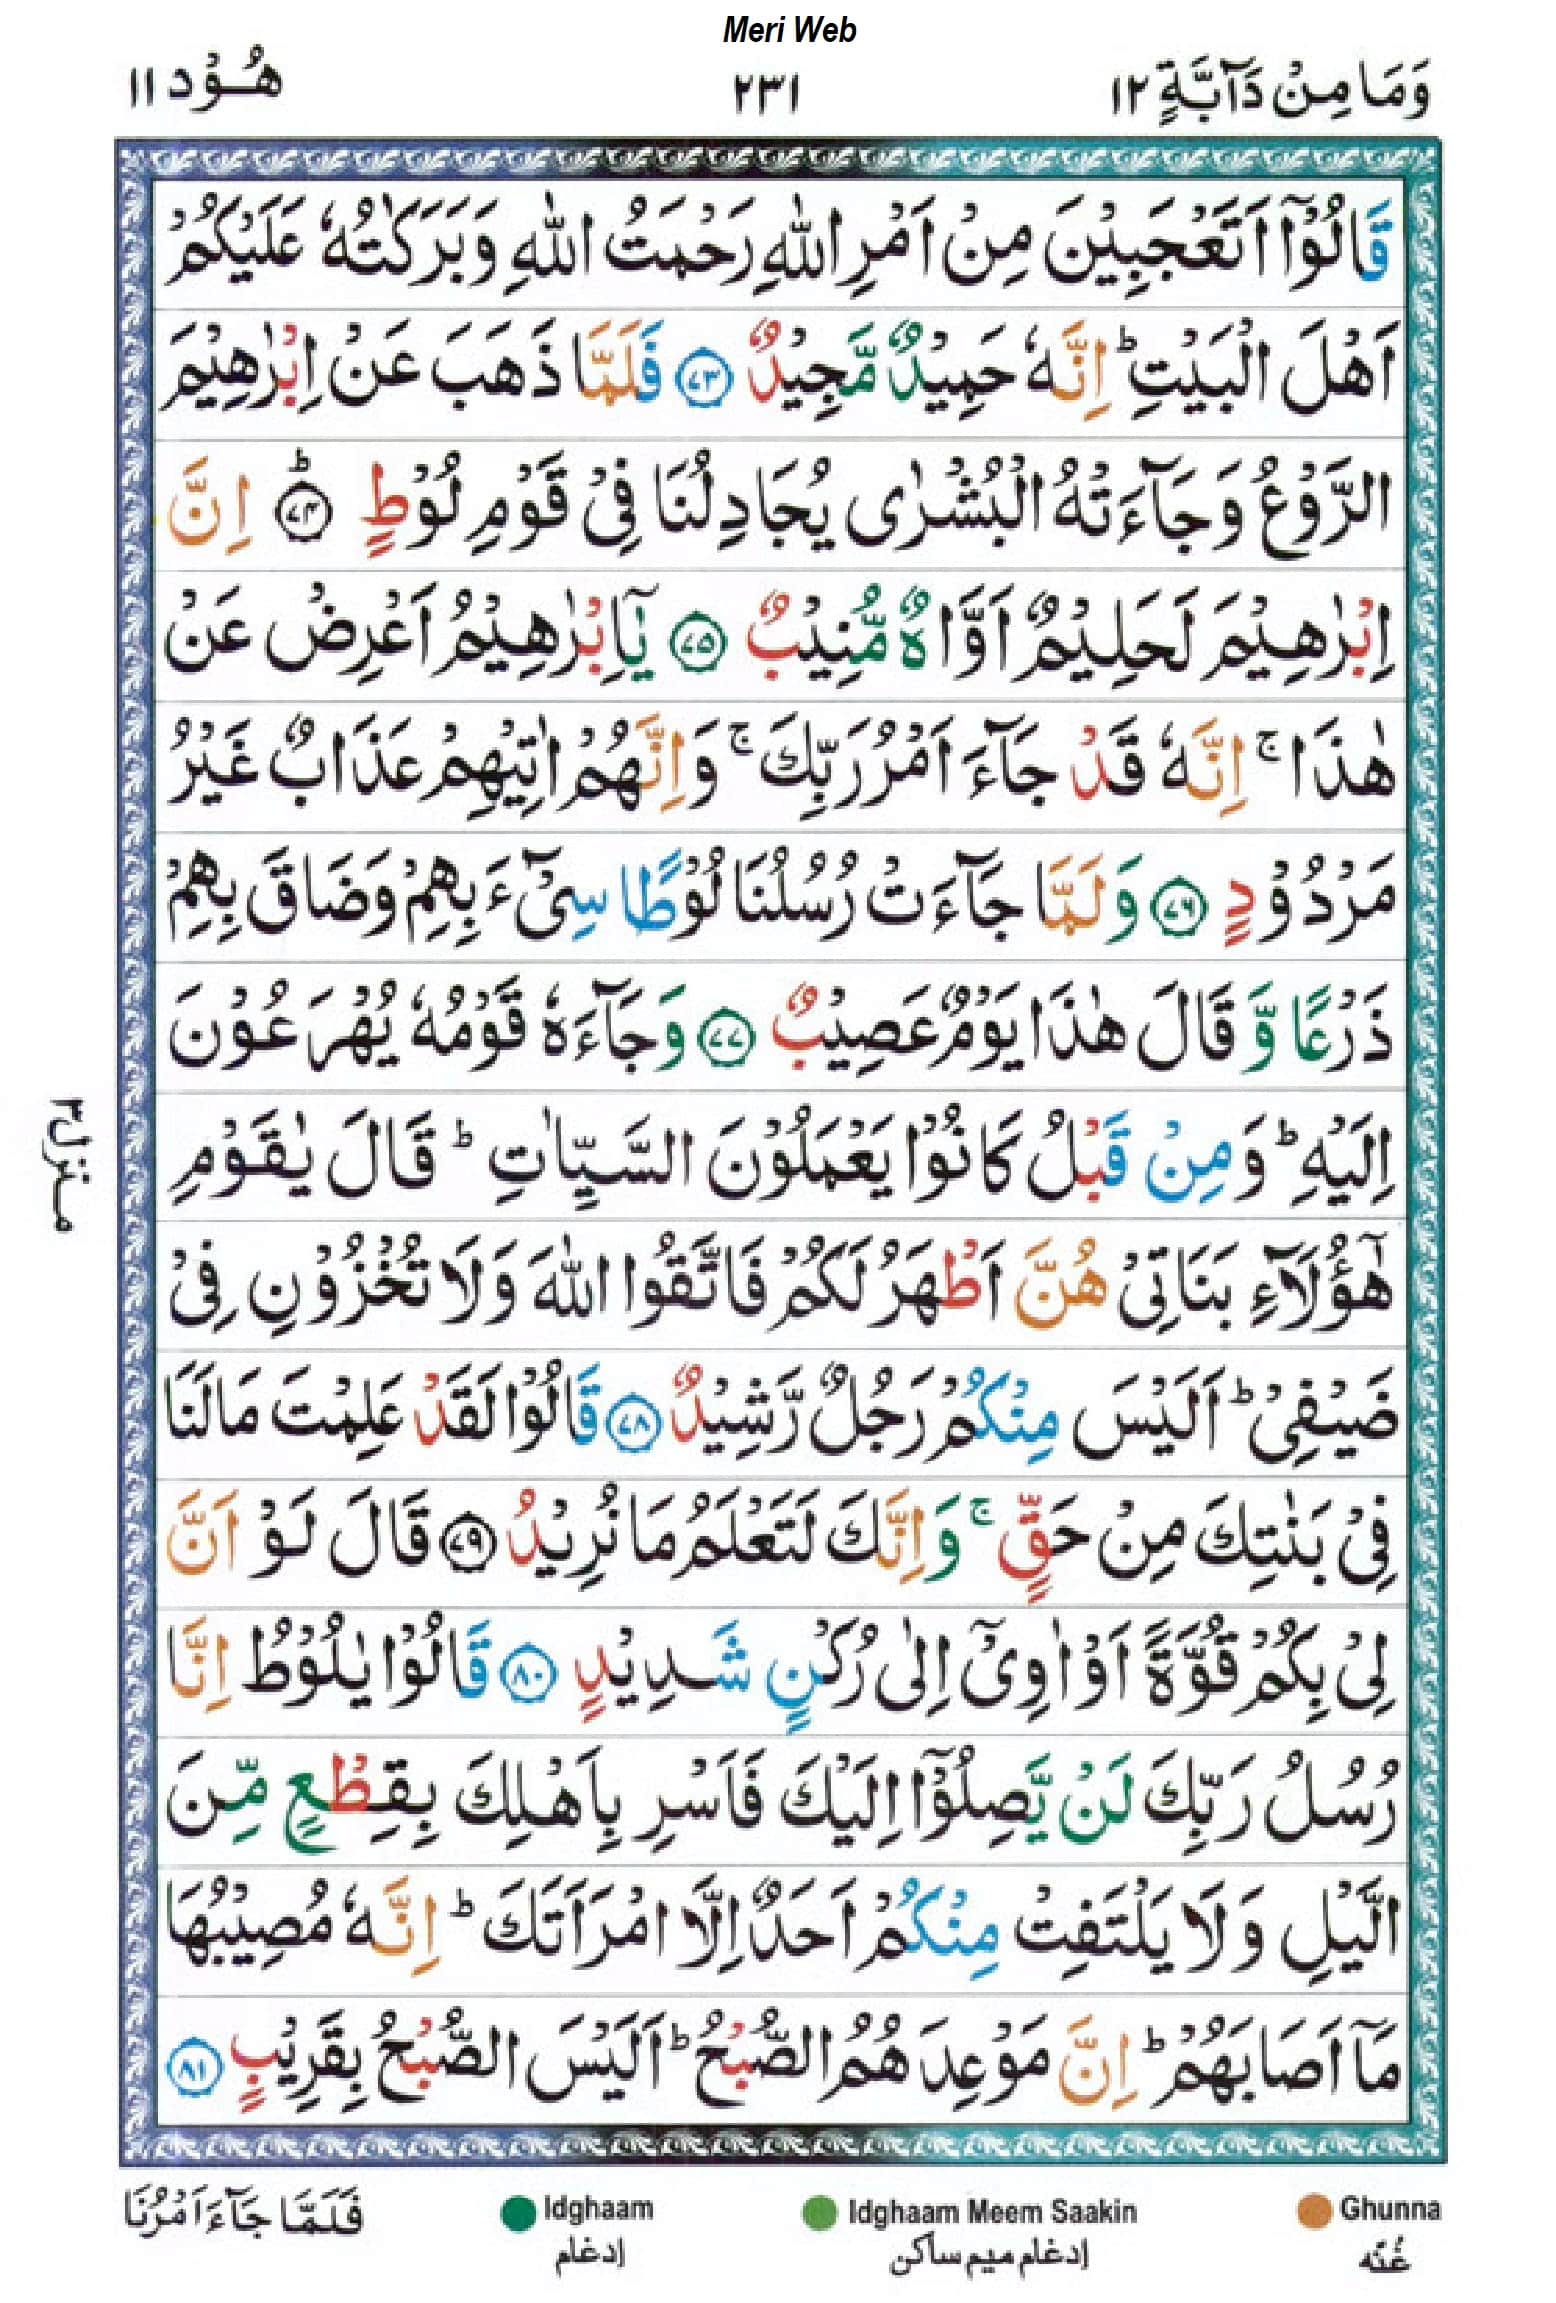 Meri Web
وَمَا مِنْ دَآبَّةٍ ١٢
٢٣١
هُوْد ١١
قَالُوْۤا اَتَعْجَبِيْنَ مِنْ اَمْرِ اللّٰهِ رَحْمَتُ اللّٰهِ وَبَرَكٰتُهٗ عَلَيْكُمْ
اَهْلَ الْبَيْتِ ؕ اِنَّهٗ حَمِيْدٌ مَّجِيْدٌ ﴿٧٣﴾ فَلَمَّا ذَهَبَ عَنْ اِبْرٰهِيْمَ
الرَّوْعُ وَجَآءَتْهُ الْبُشْرٰى يُجَادِلُنَا فِيْ قَوْمِ لُوْطٍ ؕ ﴿٧٤﴾ اِنَّ
اِبْرٰهِيْمَ لَحَلِيْمٌ اَوَّاهٌ مُّنِيْبٌ ﴿٧٥﴾ يٰۤاِبْرٰهِيْمُ اَعْرِضْ عَنْ
هٰذَا ۚ اِنَّهٗ قَدْ جَآءَ اَمْرُ رَبِّكَ ۚ وَاِنَّهُمْ اٰتِيْهِمْ عَذَابٌ غَيْرُ
مَرْدُوْدٍ ﴿٧٦﴾ وَلَمَّا جَآءَتْ رُسُلُنَا لُوْطًا سِيْٓءَ بِهِمْ وَضَاقَ بِهِمْ
ذَرْعًا وَّ قَالَ هٰذَا يَوْمٌ عَصِيْبٌ ﴿٧٧﴾ وَجَآءَهٗ قَوْمُهٗ يُهْرَعُوْنَ
اِلَيْهِ ؕ وَمِنْ قَبْلُ كَانُوْا يَعْمَلُوْنَ السَّيِّاٰتِ ؕ قَالَ يٰقَوْمِ
هٰٓؤُلَآءِ بَنَاتِيْ هُنَّ اَطْهَرُ لَكُمْ فَاتَّقُوا اللّٰهَ وَلَا تُخْزُوْنِ فِيْ
ضَيْفِيْ ؕ اَلَيْسَ مِنْكُمْ رَجُلٌ رَّشِيْدٌ ﴿٧٨﴾ قَالُوْا لَقَدْ عَلِمْتَ مَا لَنَا
فِيْ بَنٰتِكَ مِنْ حَقٍّ ۚ وَاِنَّكَ لَتَعْلَمُ مَا نُرِيْدُ ﴿٧٩﴾ قَالَ لَوْ اَنَّ
لِيْ بِكُمْ قُوَّةً اَوْ اٰوِيْٓ اِلٰى رُكْنٍ شَدِيْدٍ ﴿٨٠﴾ قَالُوْا يٰلُوْطُ اِنَّا
رُسُلُ رَبِّكَ لَنْ يَّصِلُوْۤا اِلَيْكَ فَاَسْرِ بِاَهْلِكَ بِقِطْعٍ مِّنَ
الَّيْلِ وَلَا يَلْتَفِتْ مِنْكُمْ اَحَدٌ اِلَّا امْرَاَتَكَ ؕ اِنَّهٗ مُصِيْبُهَا
مَآ اَصَابَهُمْ ؕ اِنَّ مَوْعِدَهُمُ الصُّبْحُ ؕ اَلَيْسَ الصُّبْحُ بِقَرِيْبٍ ﴿٨١﴾
منزل ٣
Ghunna
غُنّه
Idghaam Meem Saakin
إدغام ميم ساكن
Idghaam
إدغام
فَلَمَّا جَآءَ اَمْرُنَا